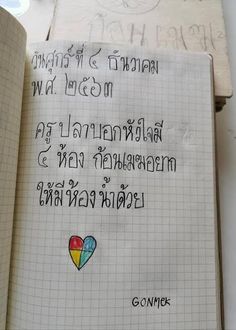 วันศุกร์ที่ ๔ ธันวาคม
พ.ศ. ๒๕๖๓
ครูปลาบอกหัวใจมี
๔ ห้อง ก้อนเมฆอยาก
ให้มีห้องน้ำด้วย
GONMEK